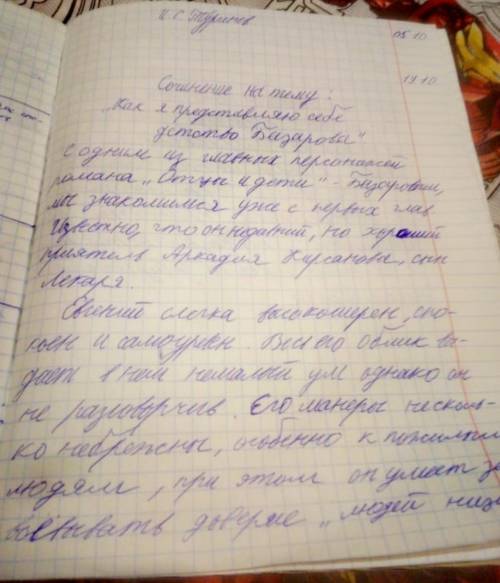 И. С. Тургенев
05.10
19.10.
Сочинение на тему:
„Как я представляю себе
детство Базарова"
С одним из главных персонажей
романа „Отцы и дети" - Базаровым,
мы знакомимся уже с первых глав
Известно, что он недавний, но хороший
приятель Аркадия Кирсанова, сын
лекаря.
Евгений слегка высокомерен, спо-
коен и самоуверен. Весь его облик вы-
дает в нем немалый ум однако он
не разговорчив. Его манеры несколь-
ко небрежны, особенно к пожилым
людям, при этом он умеет за
воевывать доверие „людей низ